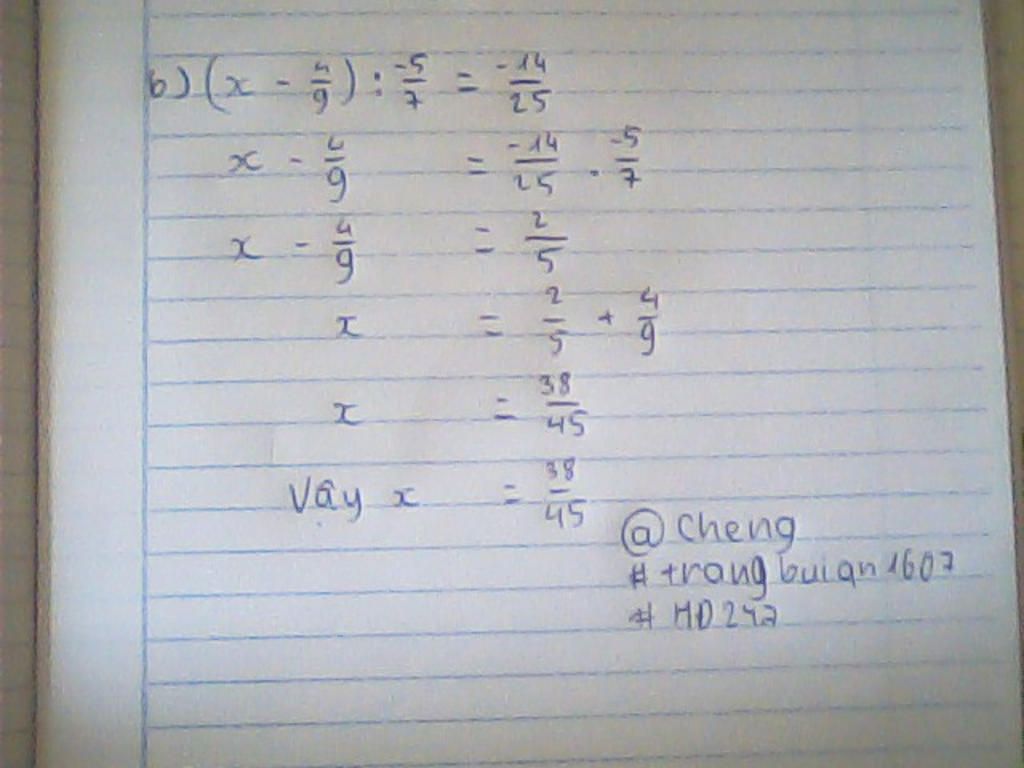 b) (x - 4/9) : -5/7 = -14/25
x - 4/9 = -14/25 . -5/7
x - 4/9 = 2/5
x = 2/5 + 4/9
x = 38/45
Vậy x = 38/45
@ Cheng
# trang buian1607
# HD247